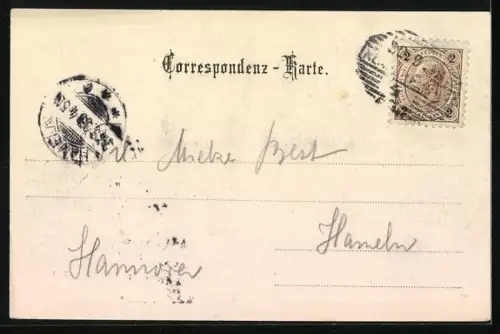 Correspondenz - Karte.
2 2
HAMELN
Frl. Mieke Best
Hameln
Hannover